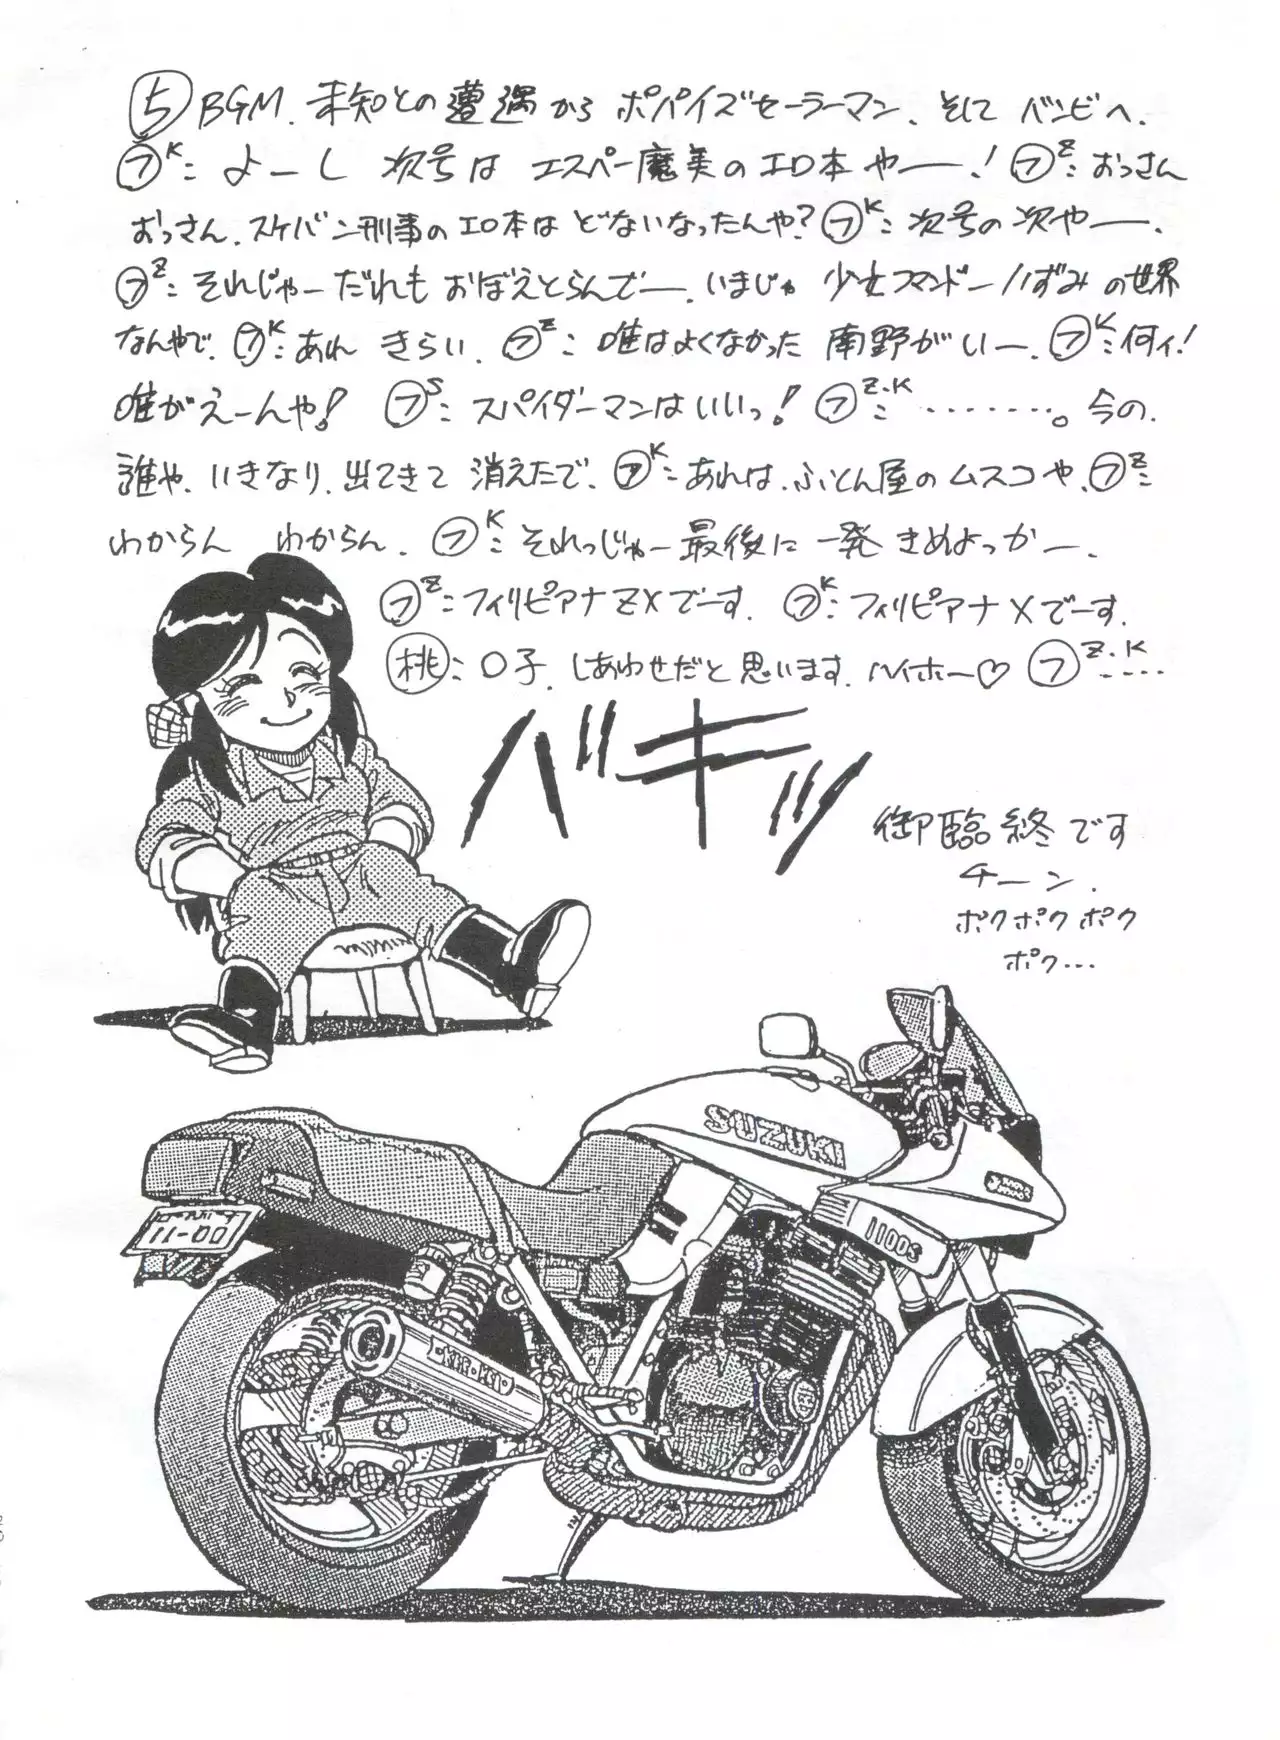 ⑤ BGM. 未知との遭遇から ポパイズセーラーマン、そして バンビへ.
㋫K: よーし 次号は エスパー魔美のエロ本やー! ㋫Z: おっさん
おっさん、スケバン刑事のエロ本は どないなったんや? ㋫K: 次号の次やー.
㋫Z: それじゃーだれも おぼえとらんでー. いまじゃ 少女コマンドーいずみの世界
なんやで. ㋫K: あれ きらい. ㋫Z: 唯はよくなかった 南野がいー. ㋫K: 何ィ!
唯がえーんや! ㋫S: スパイダーマンはいいっ! ㋫Z.K: ・・・・・・・・。今の.
誰や、いきなり、出てきて 消えたで. ㋫K: あれは、ふとん屋のムスコや. ㋫Z:
わからん わからん. ㋫K: それっじゃー最後に 一発 きめよっかー.
㋫Z: フィリピアナZXでーす. ㋫K: フィリピアナXでーす.
桃: 〇子、しあわせだと思います. ハイホー♡ ㋫Z.K ・・・・
バキッ
御臨終です
チーン.
ポクポクポク
ポク...
SUZUKI
1100S
11-00